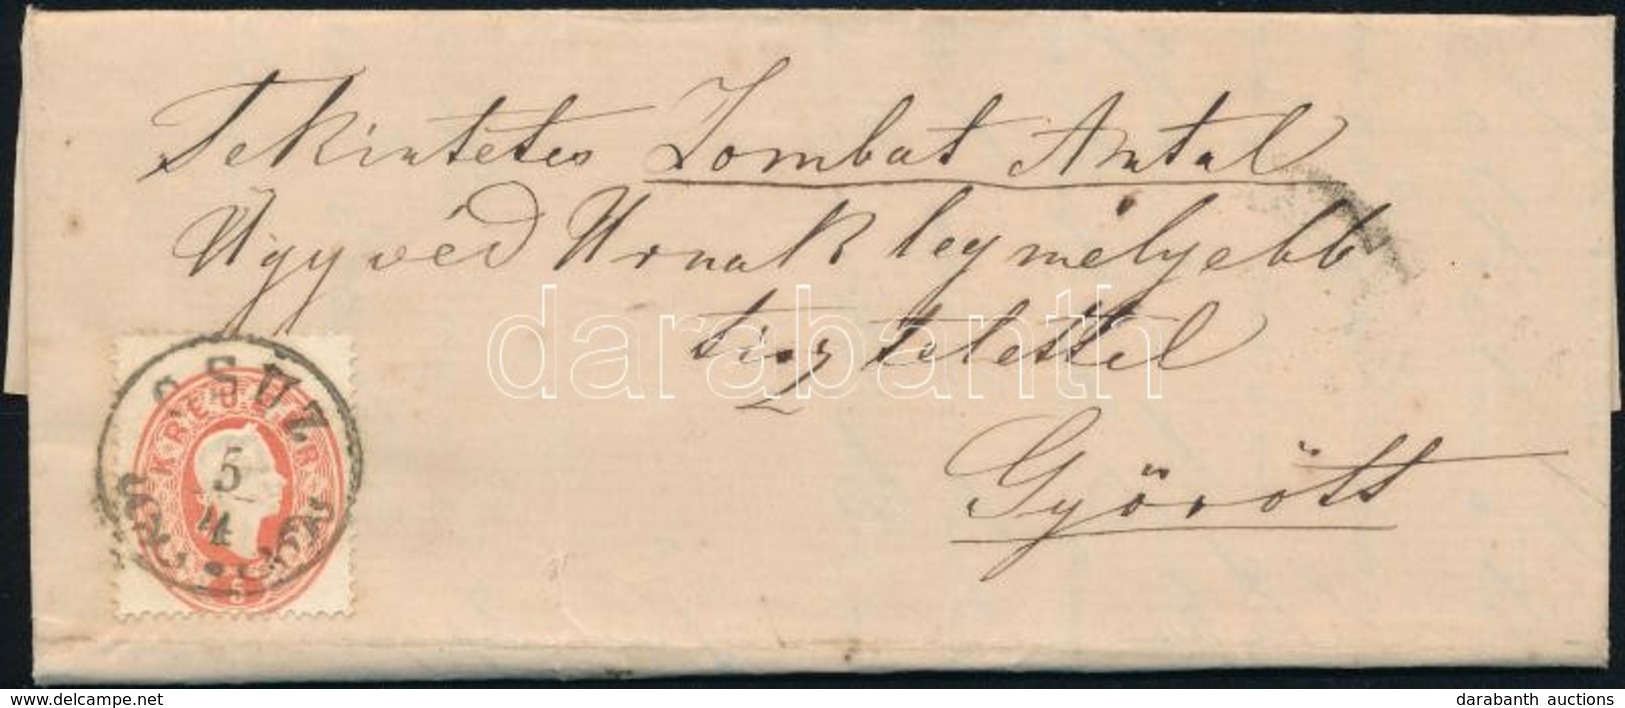 Tekintetes Zombat Antal
Ügyvéd Urnak legmélyebb
tisztelettel
Győrött
CSÚZ
5
4
KREUZER
5
darabanth
darabanth.net
darabanth auctions